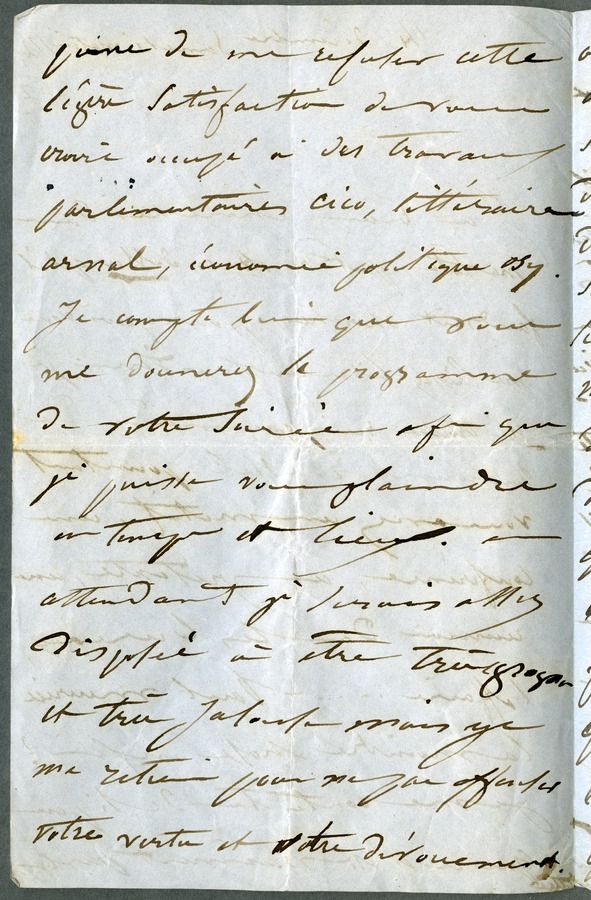 peine de me refuser cette
légère satisfaction de vous
croire occupé à des travaux
parlimentaires cico, littéraire
arnal, économie politique osy.
Je compte bien que vous
me donnerez le programme
de votre soirée afin que
je puisse vous plaindre
en temps et lieux. en
attendant je serais assez
disposée à être très grognon
et très jalouse mais je
me retiens pour ne pas offenser
votre vertu et votre dévouement.